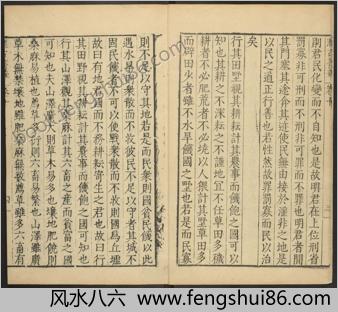 則君民化變而不自知也是故明君在上位刑省
罰寡非可刑而不刑非可罪而不罪也明君者閉
其門塞其塗弇其迹使民毋由接於淫非之地是
以民之道正行善也若性然故罪罰寡而民以治
矣
行其田野視其耕耘計其農事而饑飽之國可以
知也其耕之不深耘之不謹地宜不任草田多穢
耕者不必肥荒者不必墝以人猥計其野草田多
而辟田少者雖不水旱饑國之野也若是而民寡
則不足以守其地若是而民衆則國貧民饑以此
遇水旱則衆散而不收彼民不足以守者其城不
固民饑者不可以使戰衆散而不收則國爲丘墟
故曰有地君國而不務耕耘寄生之君也故曰行
其田野視其耕耘計其農事而饑飽之國可知也
行其山澤觀其桑麻計其六畜之產而貧富之國
可知也夫山澤廣大則草木易多也壤地肥饒則
桑麻易植也薦草多衍則六畜易繁也山澤雖廣
草木無禁壤地雖肥桑麻無數薦草雖多六畜有
风水八六
www.fengshui86.com